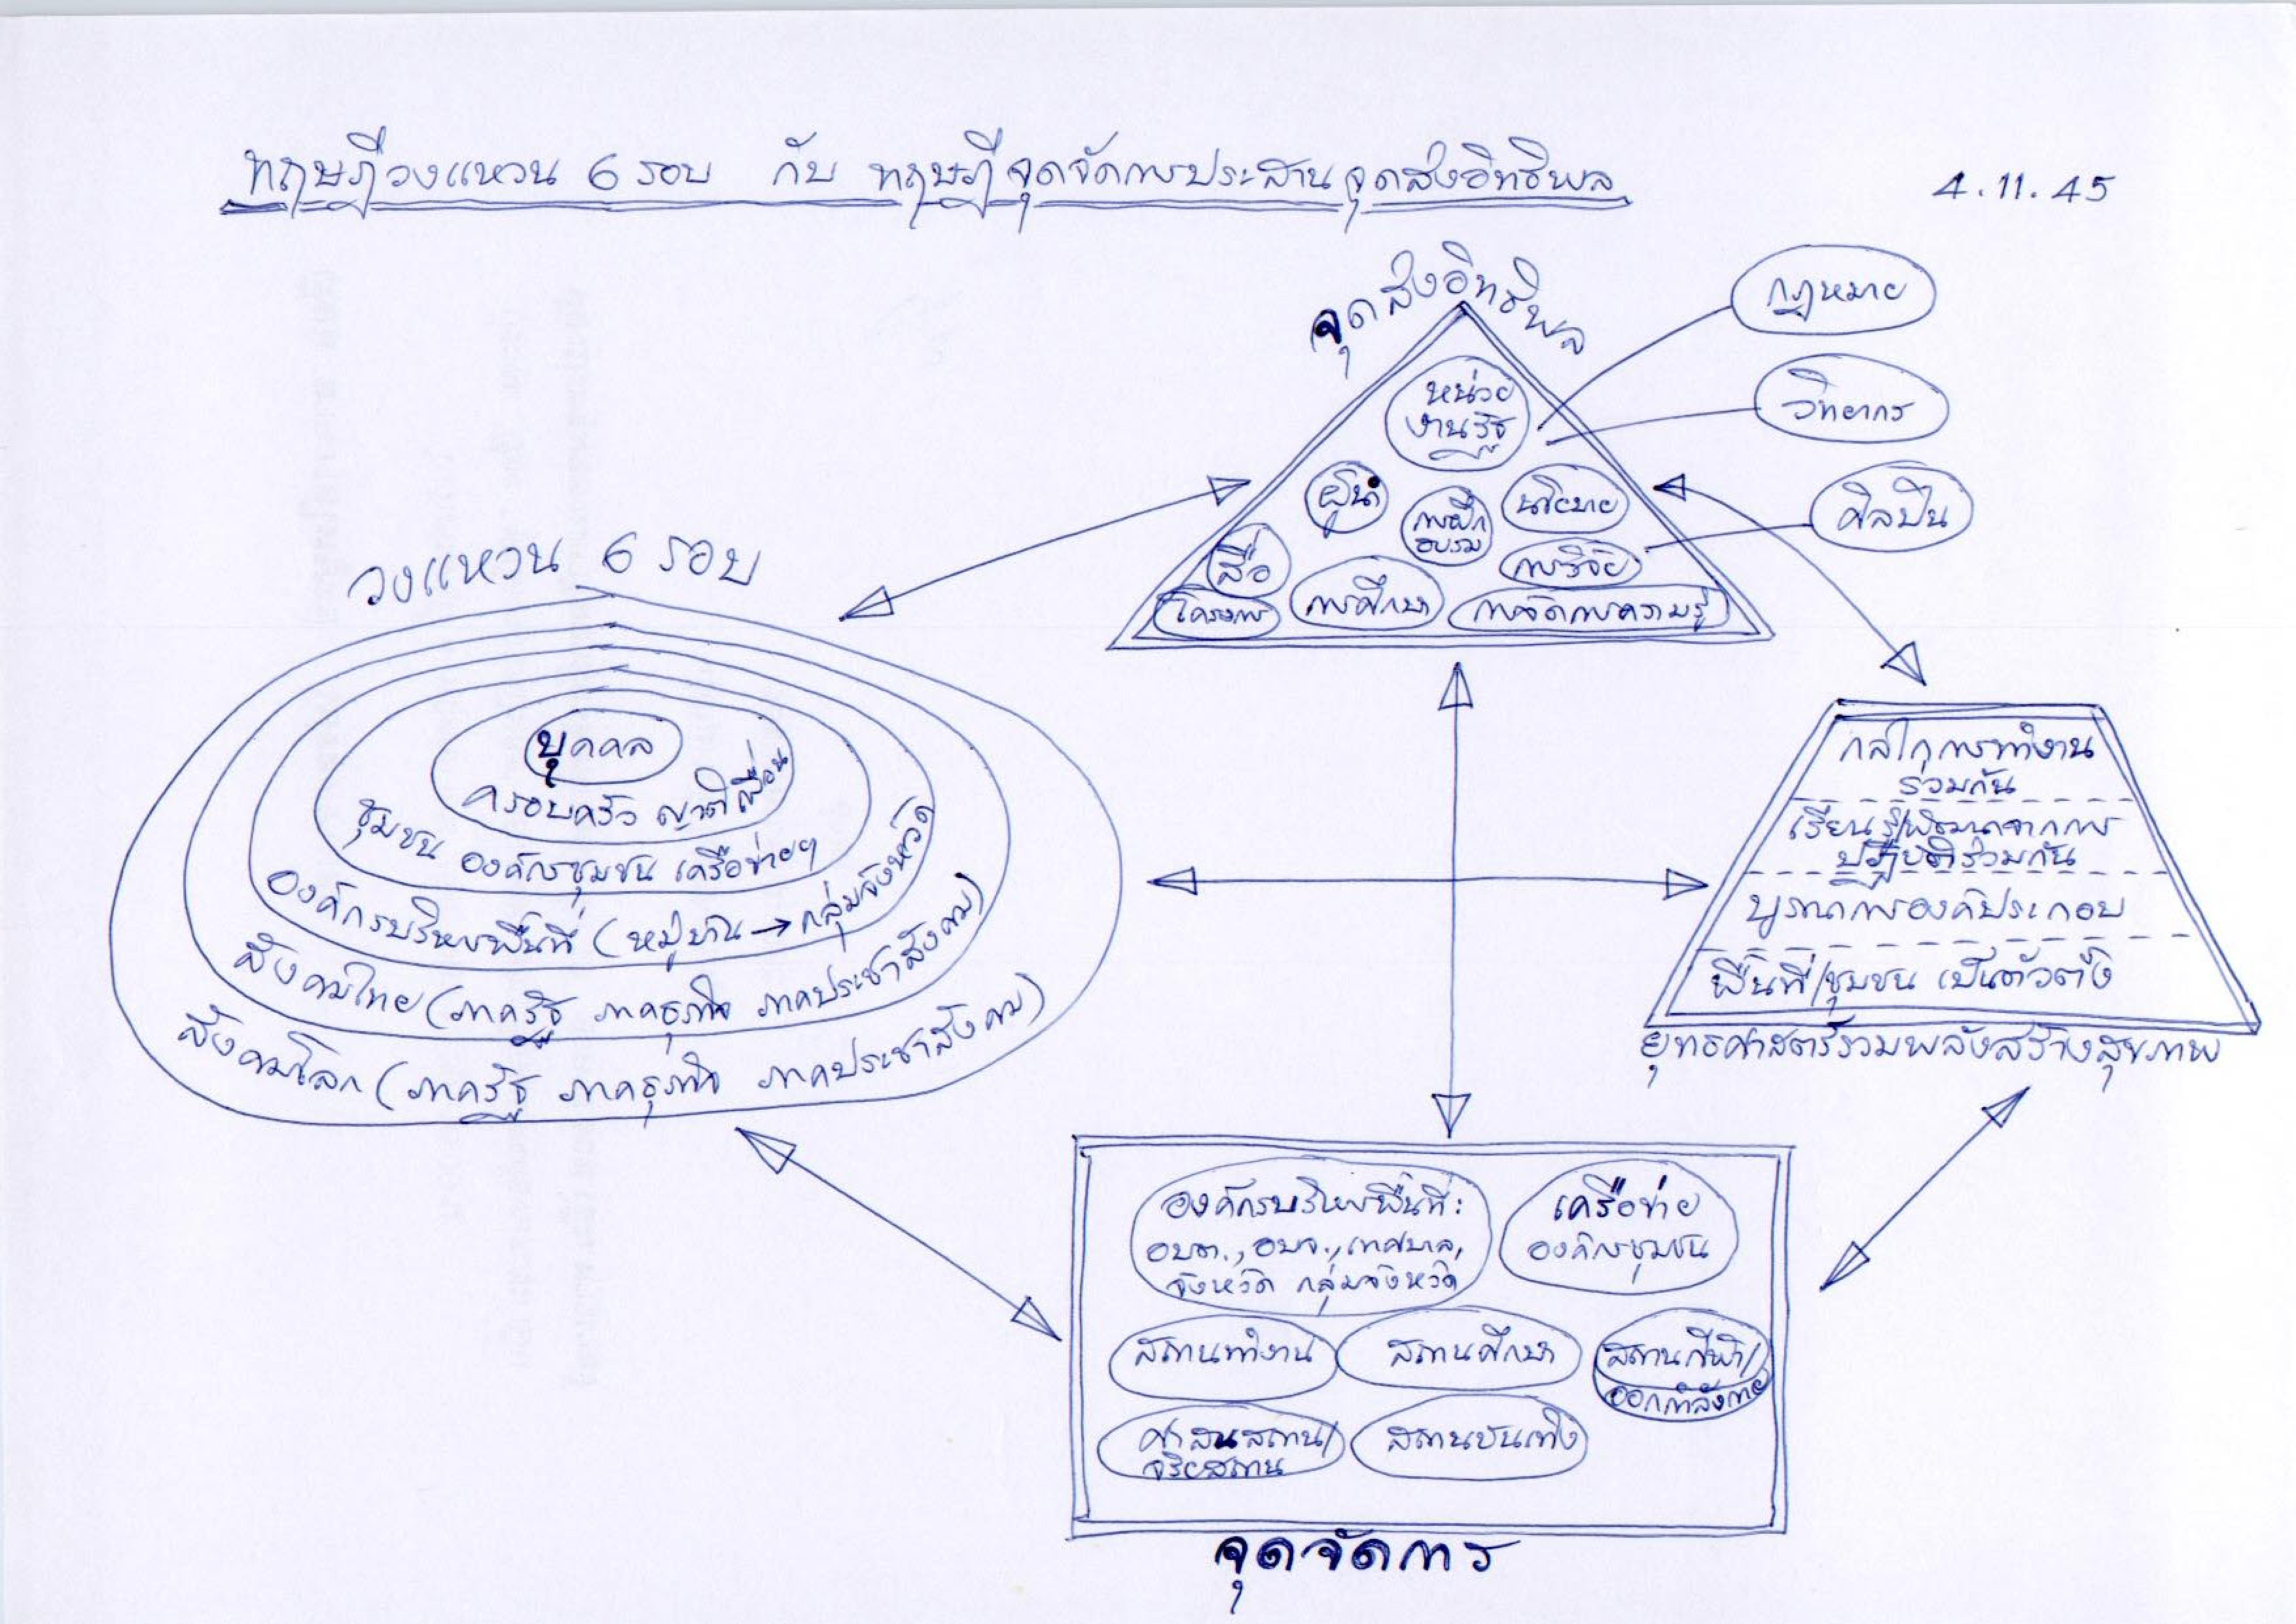 ทฤษฎีวงแหวน 6 รอบ กับ ทฤษฎีจุดจัดการประสานจุดส่งอิทธิพล
4.11.45
จุดส่งอิทธิพล
กฎหมาย
วิทยากร
ศิลปิน
หน่วย
งานรัฐ
ผู้นำ
การฝึก
อบรม
นโยบาย
สื่อ
การวิจัย
โครงการ
การศึกษา
การจัดการความรู้
วงแหวน 6 รอบ
บุคคล
ครอบครัว ญาติ เพื่อน
ชุมชน องค์กรชุมชน เครือข่ายฯ
องค์กรบริหารพื้นที่ (หมู่บ้าน → กลุ่มจังหวัด)
สังคมไทย (ภาครัฐ ภาคธุรกิจ ภาคประชาสังคม)
สังคมโลก (ภาครัฐ ภาคธุรกิจ ภาคประชาสังคม)
กลไกการทำงาน
ร่วมกัน
เรียนรู้/พัฒนาจากการ
ปฏิบัติร่วมกัน
บูรณาการองค์ประกอบ
พื้นที่/ชุมชน เป็นตัวตั้ง
ยุทธศาสตร์รวมพลังสร้างสุขภาพ
องค์กรบริหารพื้นที่:
อบต., อบจ., เทศบาล,
จังหวัด กลุ่มจังหวัด
เครือข่าย
องค์กรชุมชน
สถานทำงาน
สถานศึกษา
สถานกีฬา/
ออกกำลังกาย
ศาสนสถาน/
จริยสถาน
สถานบันเทิง
จุดจัดการ